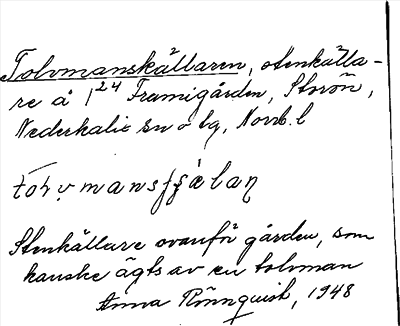 Tolvmanskällaren, stenkälla-
re å 1²⁴ Framigården, Storön,
Nederkalix sn o tg, Norrb. l
Stenkällare ovanför gården, som
kanske ägts av en tolvman
Anna Rönnquist, 1948